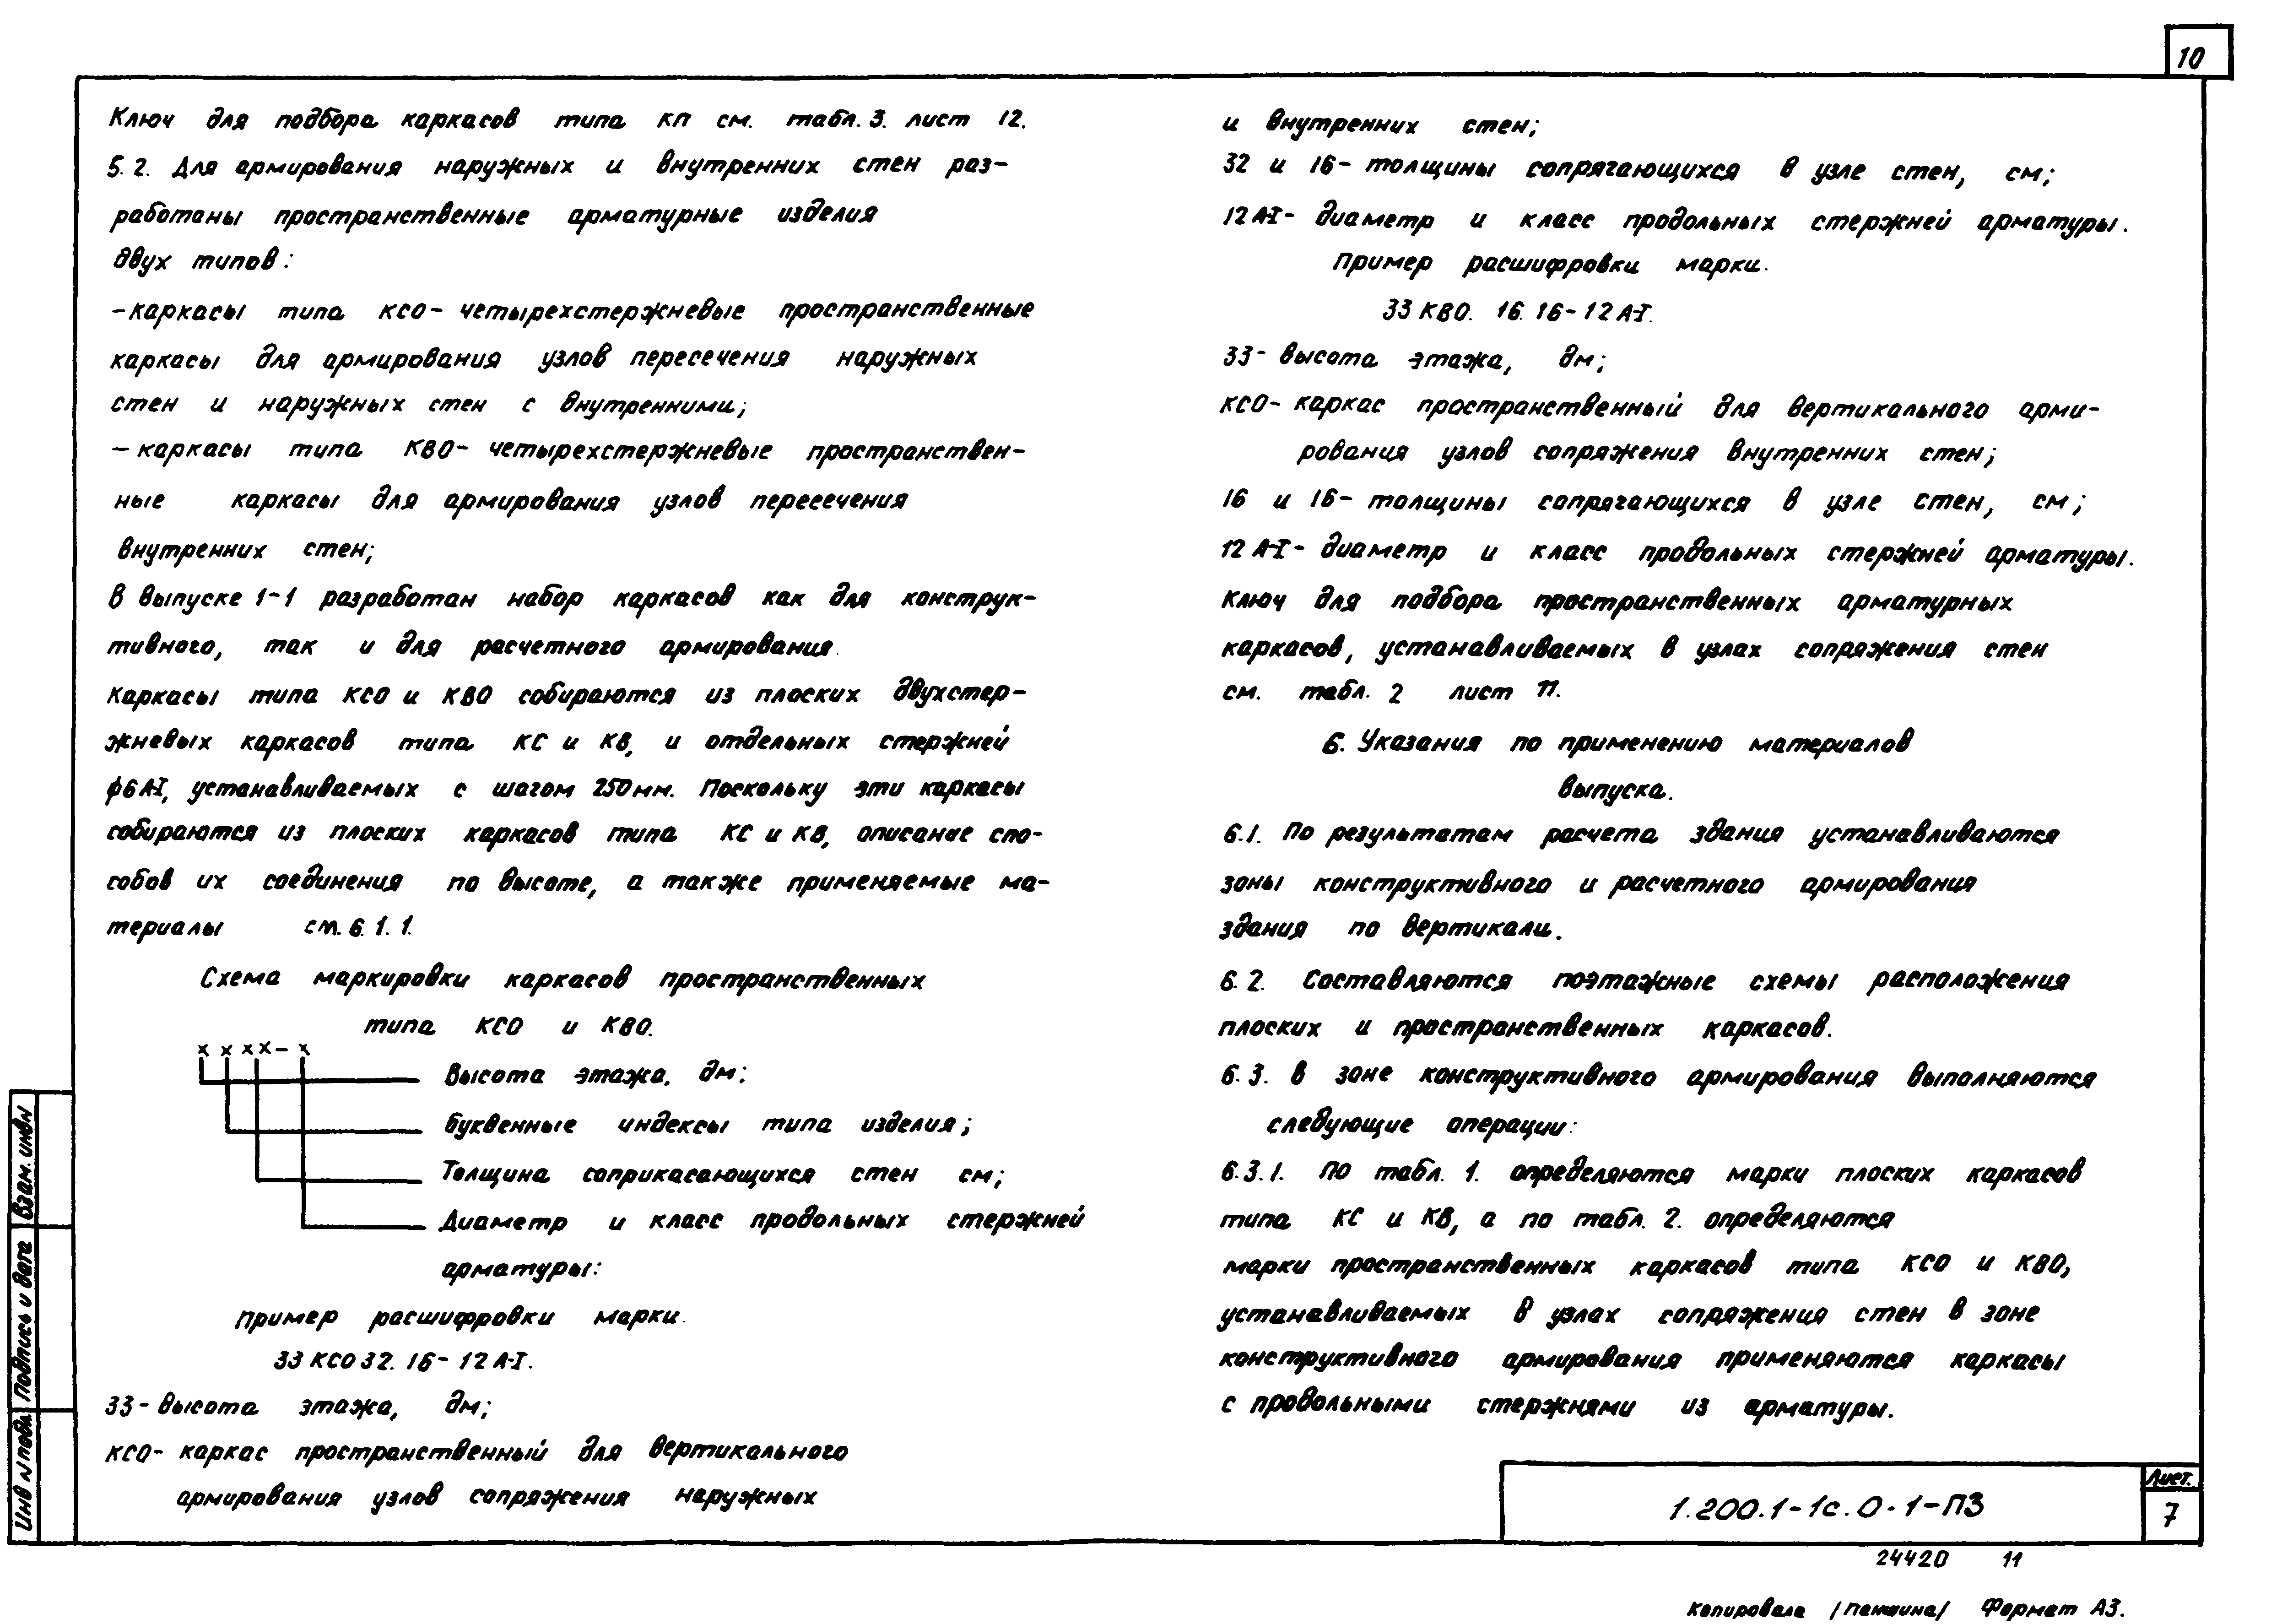 10
Ключ для подбора каркасов типа КП см. табл. 3. лист 12.
5.2. Для армирования наружных и внутренних стен раз-
работаны пространственные арматурные изделия
двух типов:
-каркасы типа КСО- четырехстержневые пространственные
каркасы для армирования узлов пересечения наружных
стен и наружных стен с внутренними;
- каркасы типа КВО- четырехстержневые пространствен-
ные каркасы для армирования узлов пересечения
внутренних стен;
В выпуске 1-1 разработан набор каркасов как для конструк-
тивного, так и для расчетного армирования.
Каркасы типа КСО и КВО собираются из плоских двухстер-
жневых каркасов типа КС и КВ, и отдельных стержней
ϕ6 А-I, устанавливаемых с шагом 250мм. Поскольку эти каркасы
собираются из плоских каркасов типа КС и КВ, описание спо-
собов их соединения по высоте, а также применяемые ма-
териалы см. 6.1.1.
Схема маркировки каркасов пространственных
типа КСО и КВО.
х х х х - х
Высота этажа, дм;
Буквенные индексы типа изделия;
Толщина соприкасающихся стен см;
Диаметр и класс продольных стержней
арматуры:
Пример расшифровки марки.
33 КСО 32. 16- 12 А-I.
33- Высота этажа, дм;
КСО- каркас пространственный для вертикального
армирования узлов сопряжения наружных
и внутренних стен;
32 и 16- толщины сопрягающихся в узле стен, см;
12 А-I- диаметр и класс продольных стержней арматуры.
Пример расшифровки марки.
33 КВО. 16. 16- 12 А-I.
33- высота этажа, дм;
КСО- каркас пространственный для вертикального арми-
рования узлов сопряжения внутренних стен;
16 и 16- толщины сопрягающихся в узле стен, см;
12 А-I- диаметр и класс продольных стержней арматуры.
Ключ для подбора пространственных арматурных
каркасов, устанавливаемых в узлах сопряжения стен
см. табл. 2 лист 11.
6. Указания по применению материалов
выпуска.
6.1. По результатам расчета здания устанавливаются
зоны конструктивного и расчетного армирования
здания по вертикали.
6.2. Составляются поэтажные схемы расположения
плоских и пространственных каркасов.
6.3. В зоне конструктивного армирования выполняются
следующие операции:
6.3.1. По табл. 1. определяются марки плоских каркасов
типа КС и КВ, а по табл. 2. определяются
марки пространственных каркасов типа КСО и КВО,
устанавливаемых в узлах сопряжения стен в зоне
конструктивного армирования применяются каркасы
с продольными стержнями из арматуры.
Взам. инв N
Подпись и дата
Инв N подл.
1.200.1-1с.0-1-ПЗ
Лист.
7
24420 11
Копировала /Паншина/ Формат А3.